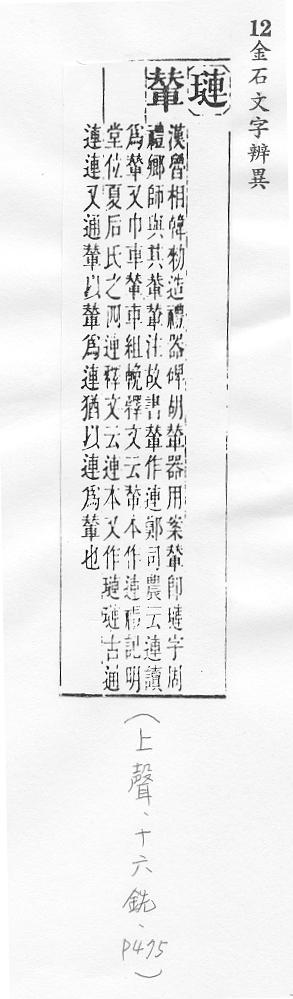 12金石文字辨異
璉
輦
漢魯相韓勑造禮器碑胡輦器用案輦即璉字周
禮鄉師與其輂輦注故書輦作連鄭司農云連讀
爲輦又巾車輦車組輓釋文云輦本作連禮記明
堂位夏后氏之四連釋文云連本又作璉璉古通
連連又通輦以輦爲連猶以連爲輦也
(上聲、十六銑、P475)